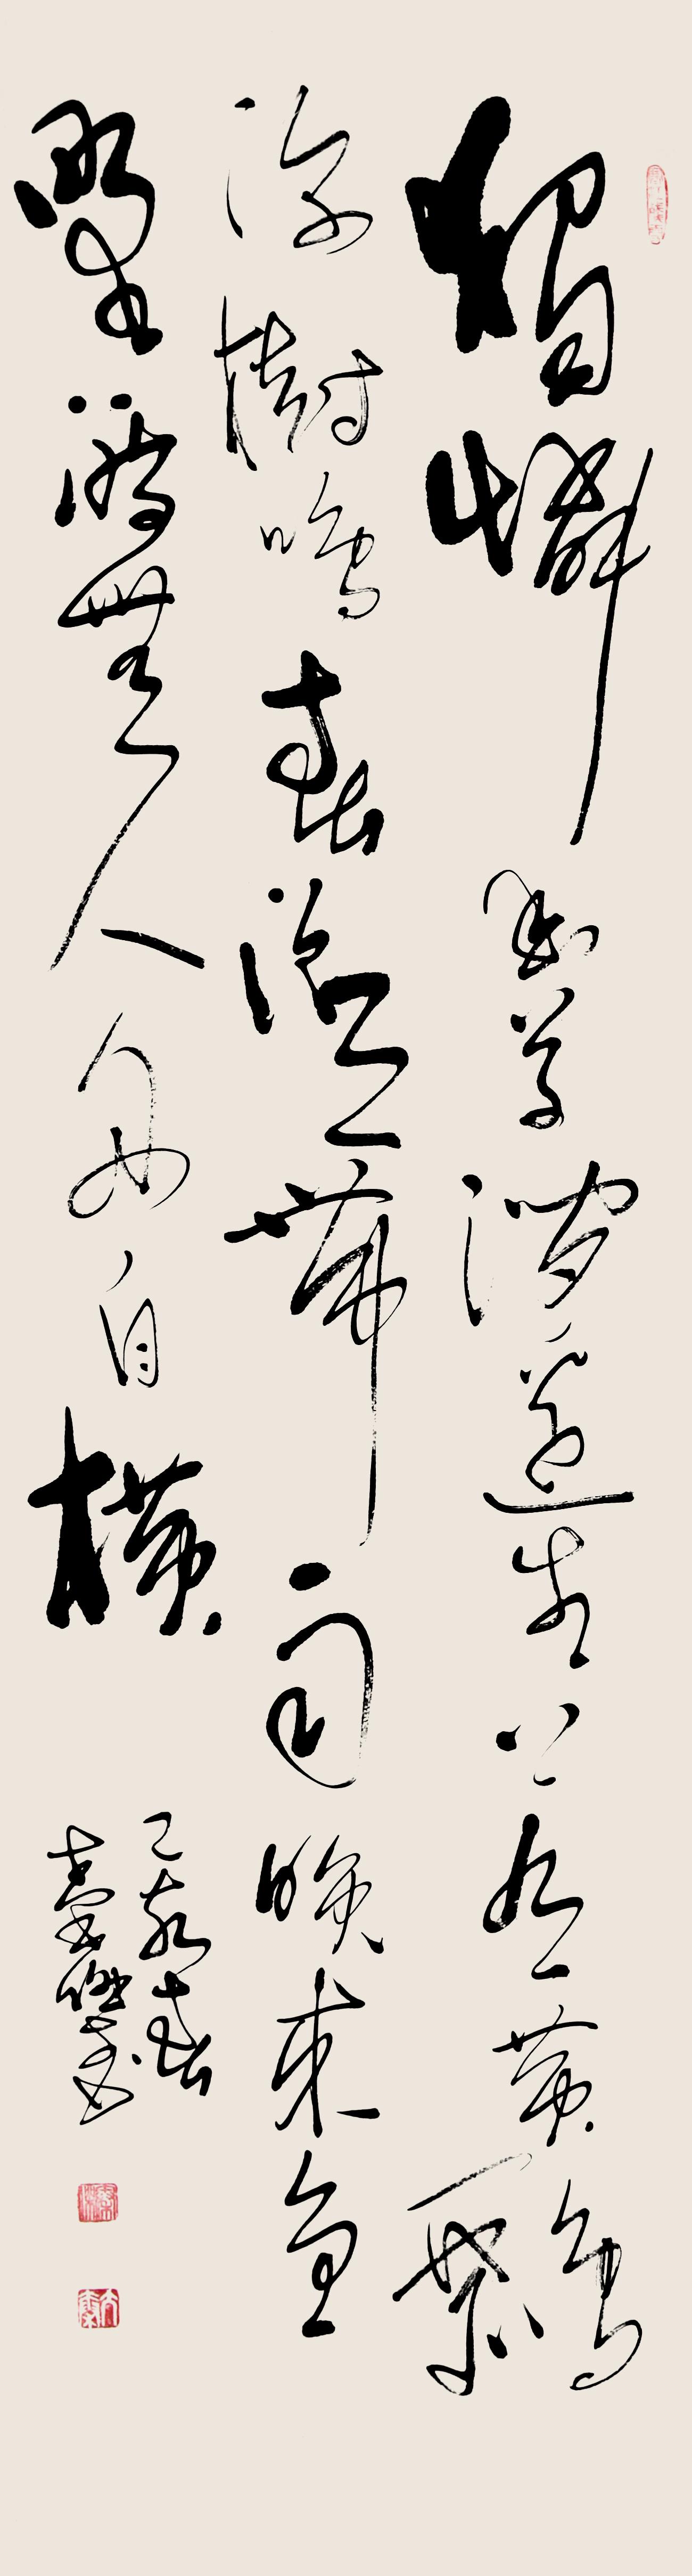 獨憐幽草澗邊生上有黃鸝
深樹鳴春潮帶雨晚來急
野渡無人舟自橫
己亥春